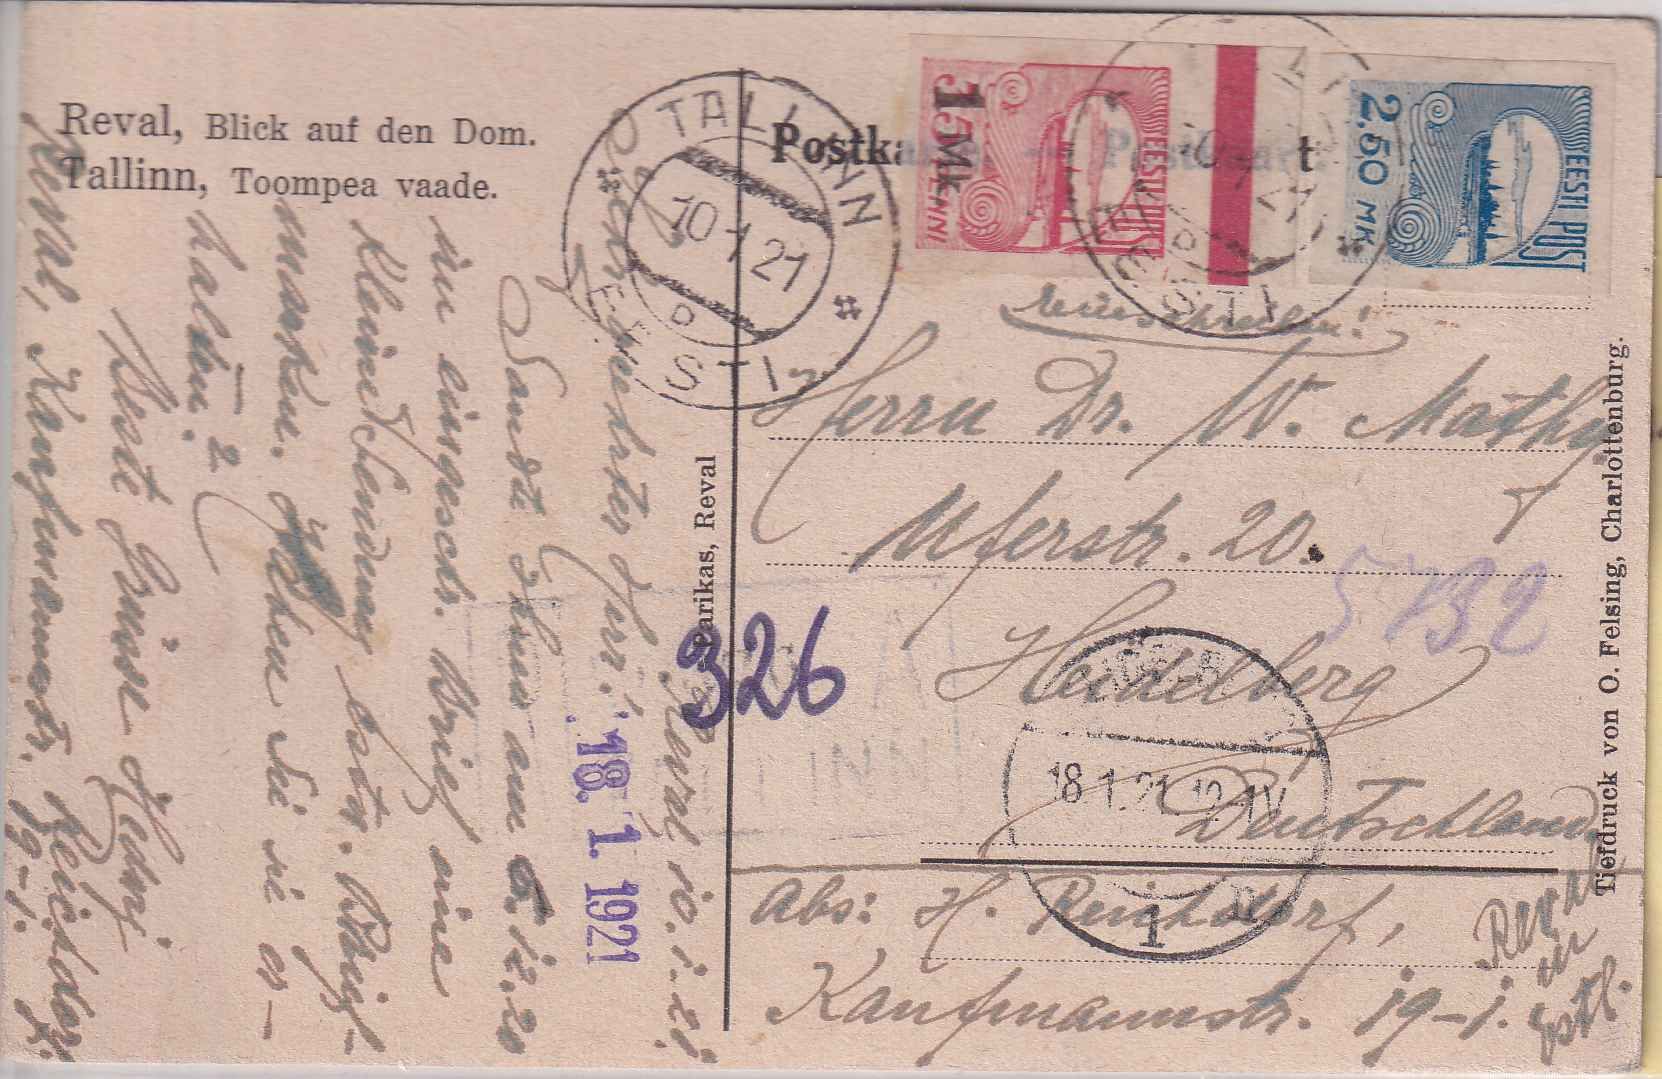 Reval, Blick auf den Dom.
Tallinn, Toompea vaade.
Postka
t
TALLINN
10 1 21
EESTI
1 Mk
35
PENNI
EESTI POST
2,50 MK
EESTI POST
EESTI
Parikas, Reval
Tiefdruck von O. Felsing, Charlottenburg.
Einschreiben!
Herrn Dr. W. Mathy
Uferstr. 20.
Heidelberg
Deutschland
326
5732
18. 1. 1921
18.1.21. 12-1V.
1
Abs: H. Reichdorf,
Kaufmannstr. 19-1.
Reval
in
Estl.
Reval 10.1.21
Sehr geehrter Herr!
Sandte Ihnen am 6.12.20
in eingeschr. Brief eine
kleine Sendung estn.
marken. Haben Sie sie er-
halten?
Beste Grüsse
Reval, Kaufmannstr. 19-1.